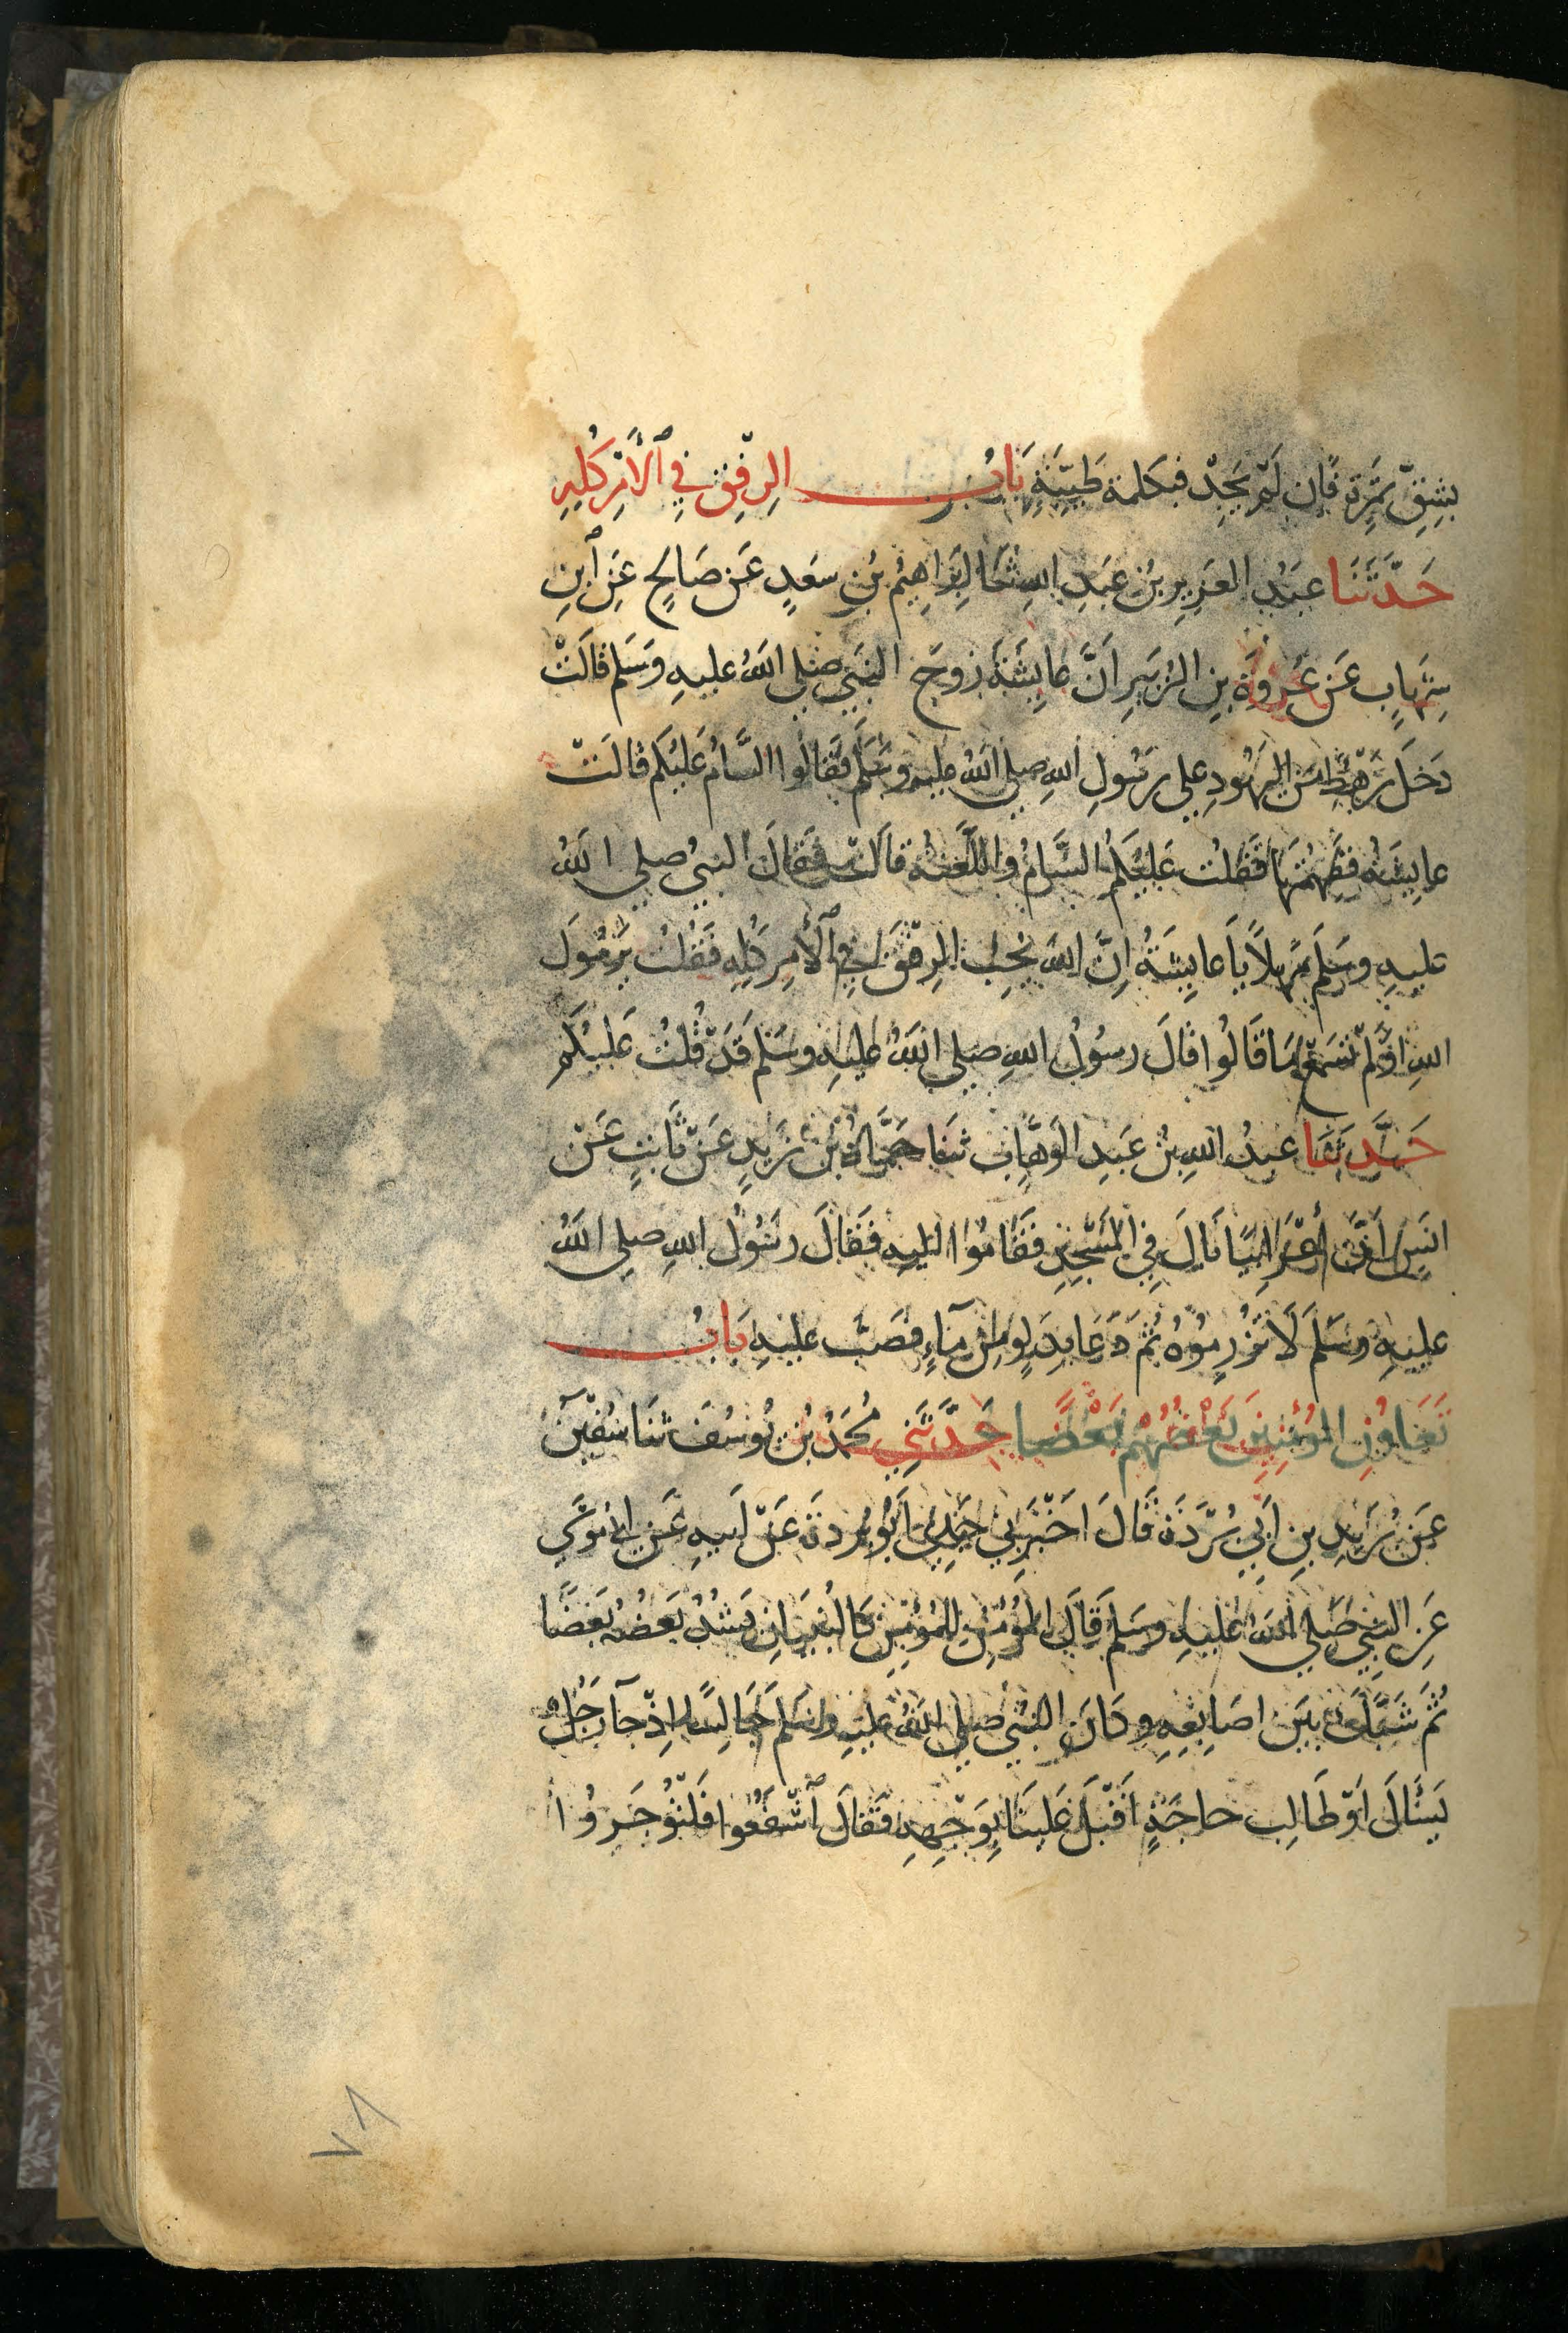 بِشِقِّ تَمْرَةٍ فَإِن لَمْ يَجِدْ فبكلمة طَيِّبَةٍ بَابُ الرِّفْقِ فِي ٱلْأَمْرِ كُلِّهِ
حَدَّثَنَا عَبْدُ العَزِيزِ بنُ عَبْدِ اللهِ ثنَا إبْرَاهِيمُ بْنُ سَعْدٍ عَن صَالِحٍ عَنِ ٱبنِ
شِهَابٍ عَن عُرْوَةَ بنِ الزُّبَيرِ اَنَّ عَايِشَةَ زوجَ النَّبِي صلى اللهُ عليهِ وَسَلم قَالَتْ
دَخَلَ رَهْطٌ مِنَ اليَهُودِ على رَسُولِ اللهِ صلى اللهُ عليه وَسَلَّم فقَالُوا السَّامُ عَلَيْكم قالَتْ
عايِشَةُ فَفَهِمْتُهَا فَقُلْتُ عَلَيْكُمُ السَّامُ واللَّعْنَةُ قالَتْ فَقَالَ النبيُ صلى اللهُ
عليهِ وَسَلم مَهْلًا يَا عايِشَةُ اِنَّ اللهَ يُحِبُّ الرِّفْقَ فِي ٱلْأَمْرِ كُلِّهِ فَقُلْتُ يَرَسُولَ
اللهِ اَوَلَمْ تَسْمَعْ مَا قَالُوا قَالَ رسُولُ اللهِ صلى اللهُ عليهِ وسَلم قَدْ قُلْتُ عَلَيْكُم
حَدَّثَنَا عبدُ اللهِ بنُ عَبدِ الوَهَّابِ ثنَا حَمَّادُ بْنُ زَيدٍ عَنْ ثَابِتٍ عَنْ
انَسٍ اَنَّ أَعْرَابِيًا بَالَ فِي المَسْجِدِ فَقَامُوا اليهِ فَقَالَ رسُولُ اللهِ صلى اللهُ
عليهِ وسَلم لَا تُزْرِمُوهُ ثُمَّ دَعَا بِدَلْوٍ مِنْ مآءٍ فصَبَّ عليهِ بَابُ
تَعَاوُنِ المُؤْمِنِينَ بَعْضُهُمْ بَعْضًا حَدَّثَنِي مُحَمَّدُ بْنُ يُوسُفَ ثنَا سُفْيٰنُ
عَن بُرَيْدِ بنِ أَبِي بُرْدَةَ قَالَ اَخْبَرَنِي جَدِّي اَبُو بُردَةَ عَنْ اَبيهِ عَن ابي مُوسَي
عَنِ النبيِّ صَلي اللهُ عليهِ وسَلم قَالَ المُؤْمِنُ لِلمُؤْمِنِ كَالبُنْيَانِ يَشُدُّ بَعضُهُ بَعْضًا
ثُمَّ شَبَّكَ بَيْنَ اصَابِعِهِ وكَانَ النبي صلي اللهُ عليهِ وسَلم جَالِسًا اِذْ جآ رَجُلٌ
يَسْئَالُ اَوْ طَالِب حاجَةٍ اَقْبَلَ عَلينَا بِوَجْهِهِ فَقَالَ ٱشْفَعُوا فَلْتُؤْجَرُوا
٧٨